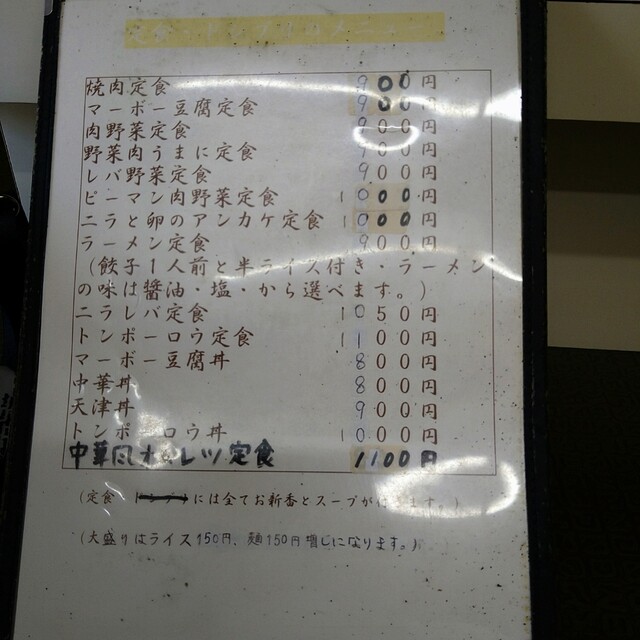 焼肉定食 900円
マーボー豆腐定食 900円
肉野菜定食 900円
野菜肉うまに定食 900円
レバ野菜定食 900円
ピーマン肉野菜定食 1000円
ニラと卵のアンカケ定食 1000円
ラーメン定食 900円
(餃子1人前と半ライス付き・ラーメン
の味は醤油・塩・から選べます。)
ニラレバ定食 1050円
トンポーロウ定食 1100円
マーボー豆腐丼 800円
中華丼 800円
天津丼 900円
トンポーロウ丼 1000円
中華風オムレツ定食 1100円
(定食 には全てお新香とスープが付きます。)
(大盛りはライス150円、麺150円増しになります。)